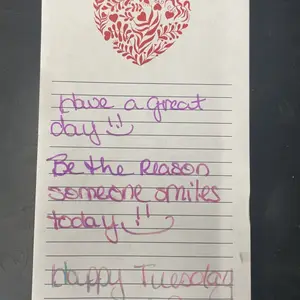 Have a great
day !!
Be the Reason
someone smiles
today !!
Happy Tuesday